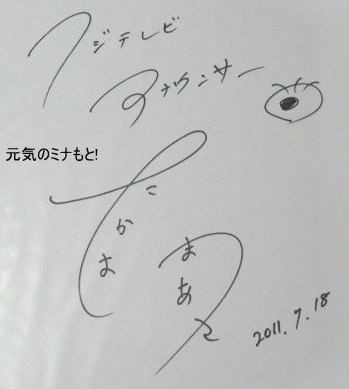 フジテレビ
アナウンサー
元気のミナもと!
たかはし
まあさ
2011.7.18